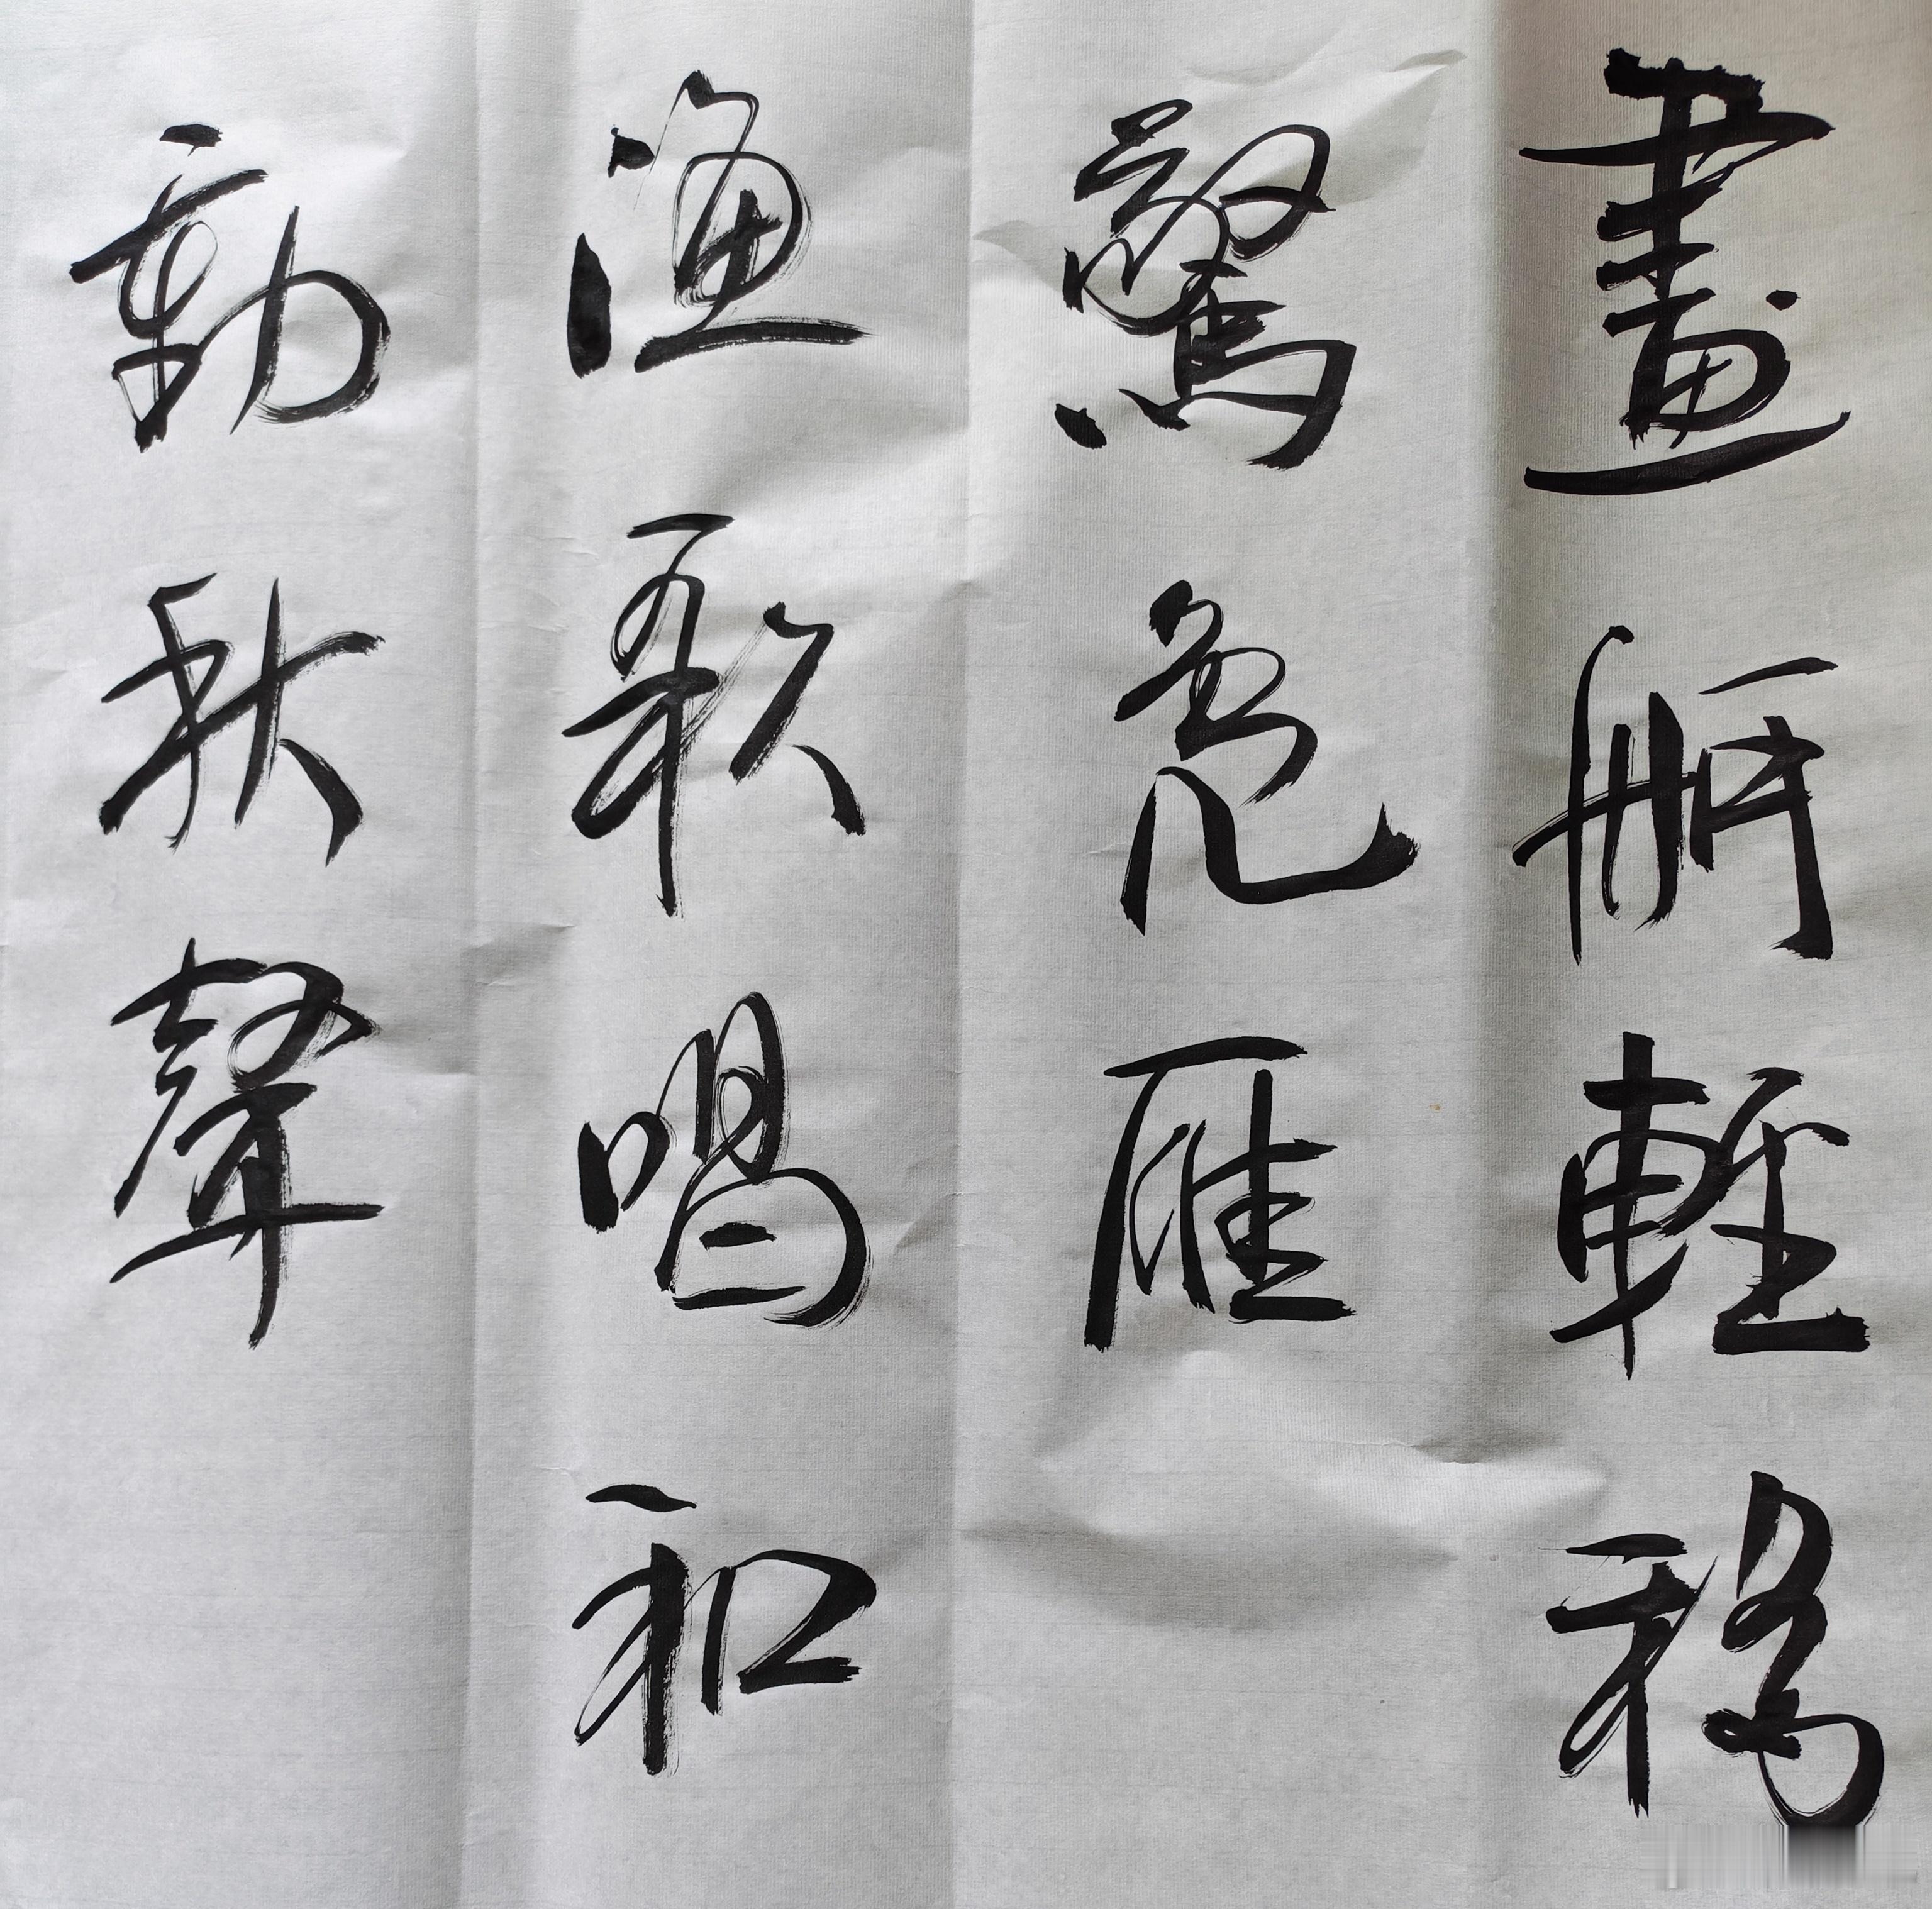 畫舸輕移
驚鳧雁
漁歌唱和
動秋聲